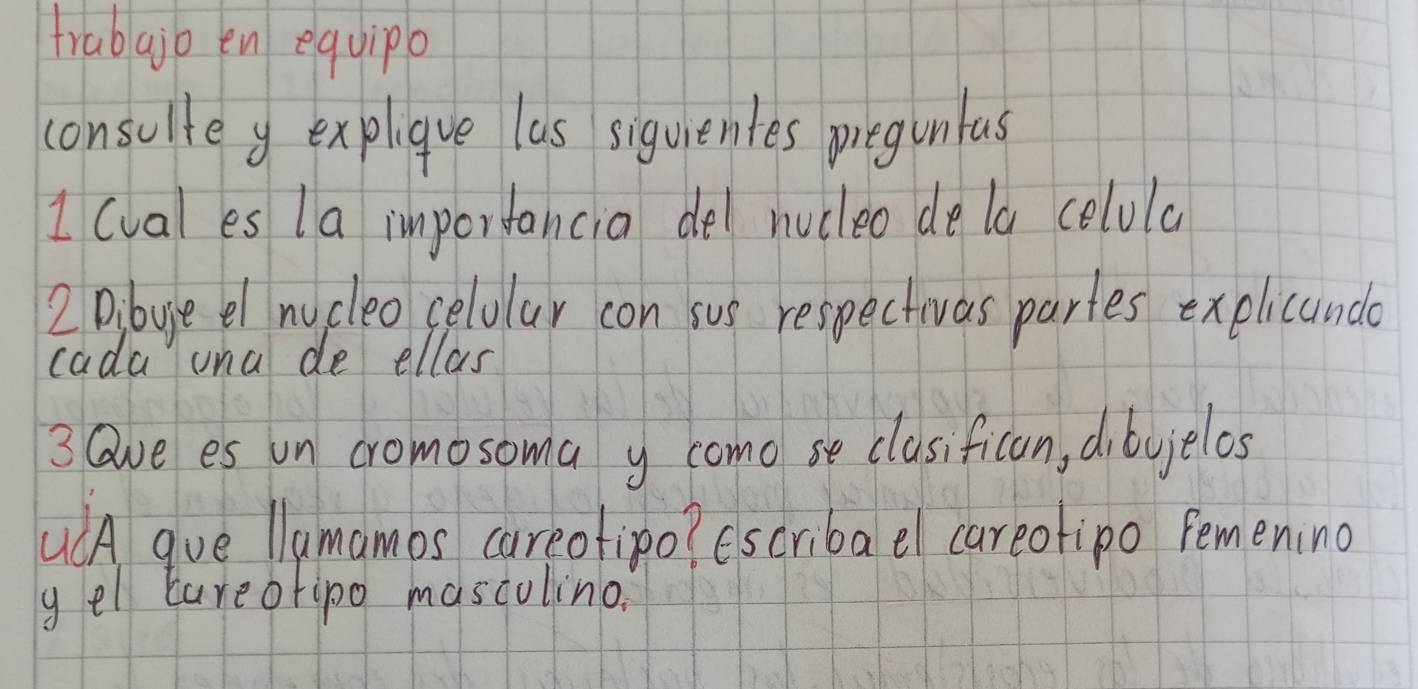 trabajo en equipo
consulte y explique las siguientes preguntas
1 Cual es la importancia del nucleo de la celula
2 Dibuje el nucleo celular con sus respectivas partes explicando
cada una de ellas
3 Que es un cromosoma y como se clasifican, dibujelos
4¿A que llamamos careotipo? Escriba el careotipo femenino
y el careotipo masculino.